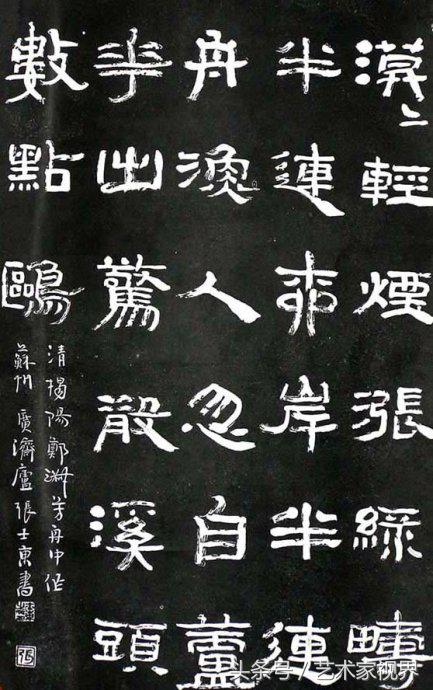 漠〻輕煙漲綠疇
半連赤岸半連
舟漁人忽自蘆
華出驚散溪頭
數點鷗
清揭陽鄭淑芳舟中作
蘇州廣濟廬張士東書
头条号 / 艺术家视界